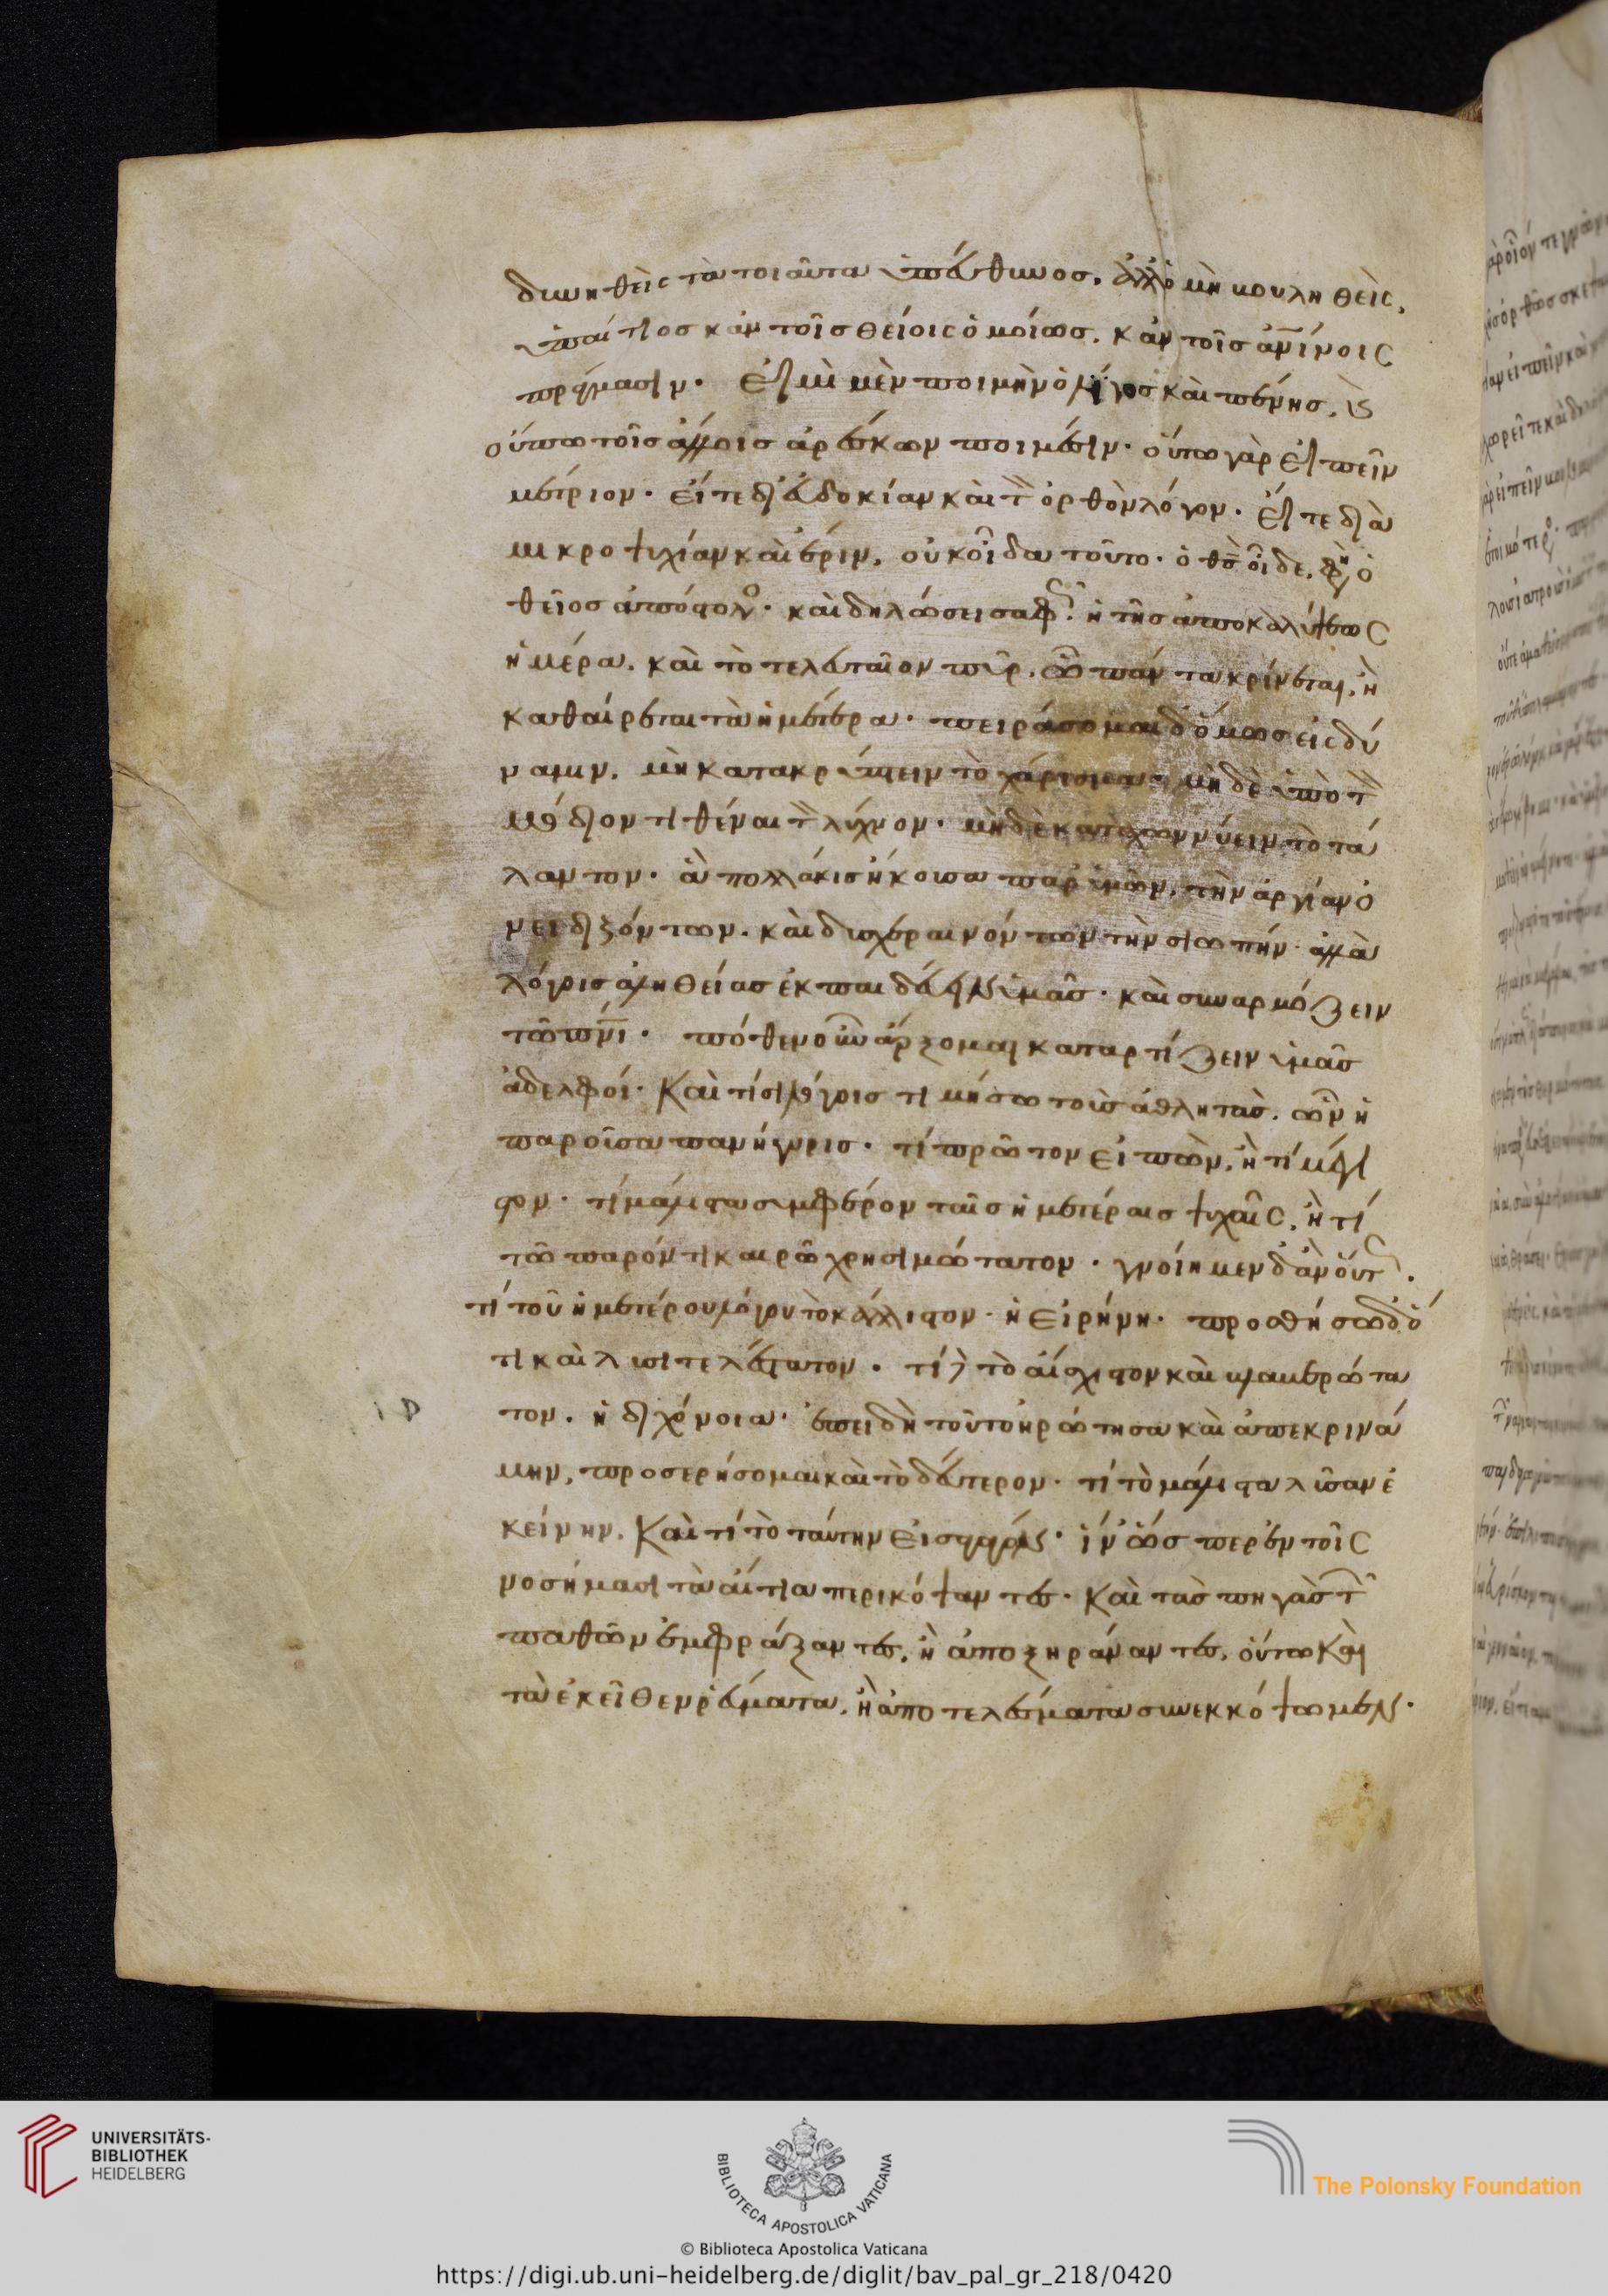 δυνηθεὶς τὰ τοιαῦτα ὑπεύθυνος, ἀλλ' ὁ μὴ βουληθεὶς,
ὑπαίτιος κἀν τοῖς θείοις ὁμοίως, κἀν τοῖς ἀν̅ίνοις
πράγμασιν. εἰμὶ μὲν ποιμὴν ὀλίγος καὶ πένης, καὶ
οὔπω τοῖς ἄλλοις ἀρέσκων ποιμέσιν. οὕτω γὰρ εἰπεῖν
μέτριον. εἴτε δι' εὐδοκίαν καὶ τὸν ὀρθὸν λόγον. εἴτε διὰ
μικροψυχίαν καὶ ἔριν, οὐκ οἶδα τοῦτο. ὁ θ̅ς̅ οἶδε, φη ὁ
θεῖος ἀπόστολο. καὶ δηλώσει σαφῶς ἡ τῆς ἀποκαλύψεως
ἡμέρα, καὶ τὸ τελευταῖον πῦρ. ᾧ πάντα κρίνεται, ἢ
καθαίρεται τὰ ἡμέτερα. πειράσομαι δ' ὅμως εἰς δύ
ναμιν, μὴ κατακρύπτειν τὸ χάρισμα, μηδὲ ὑπὸ τὸν
μόδιον τιθέναι τὸν λύχνον. μηδὲ καταχωννύειν τὸ τά
λαντον. ἃ πολλάκις ἤκουσα παρ' ὑμῶν, τὴν ἀργίαν ὀ
νειδιζόντων. καὶ δυσχεραινόντων τὴν σιωπήν. ἀλλὰ
λόγοις ἀληθείας ἐκπαιδεύειν ὑμᾶς. καὶ συναρμόζειν
τῷ πν̅ι. πόθεν οὖν ἄρξομαι καταρτίζειν ὑμᾶς
ἀδελφοί. καὶ τίσι λόγοις τιμήσω τοὺς ἀθλητὰς. ὧν ἡ
παροῦσα πανήγυρις. τί πρῶτον εἰπὼν, ἢ τί μέγι
στον. τί μάλιστα συμφέρον ταῖς ἡμετέραις ψυχαῖς, ἢ τί
τῷ παρόντι καιρῷ χρησιμώτατον. γνοίημεν δ' ἂν οὕτως.
τί τοῦ ἡμετέρου λόγου τὸ κάλλιστον. ἡ εἰρήνη. προσθήσω δ' ὅ
τι καὶ λυσιτελέστατον. τί δὲ τὸ αἴσχιστον καὶ βλαβερώτα
τον. ἡ διχόνοια. ἐπειδὴ τοῦτο ἠρώτησα καὶ ἀπεκρινά
μην, προσερήσομαι καὶ τὸ δεύτερον. τί τὸ μάλιστα λῦσαν ἐ
κείνην. καὶ τί τὸ ταύτην εἰσαγαγόν. ἵν' ὥσπερ ἐν τοῖς
νοσήμασι τὰ αἴτια περικόψαντες. καὶ τὰς πηγὰς τῶν
παθῶν ἐμφράξαντες, ἢ ἀποξηράναντες, οὕτω καὶ
τὰ ἐκεῖθεν ῥεύματα, ἢ ἀποτελέσματα συνεκκόψωμεν.
UNIVERSITÄTS-
BIBLIOTHEK
HEIDELBERG
BIBLIOTECA APOSTOLICA VATICANA
The Polonsky Foundation
© Biblioteca Apostolica Vaticana
https://digi.ub.uni-heidelberg.de/diglit/bav_pal_gr_218/0420